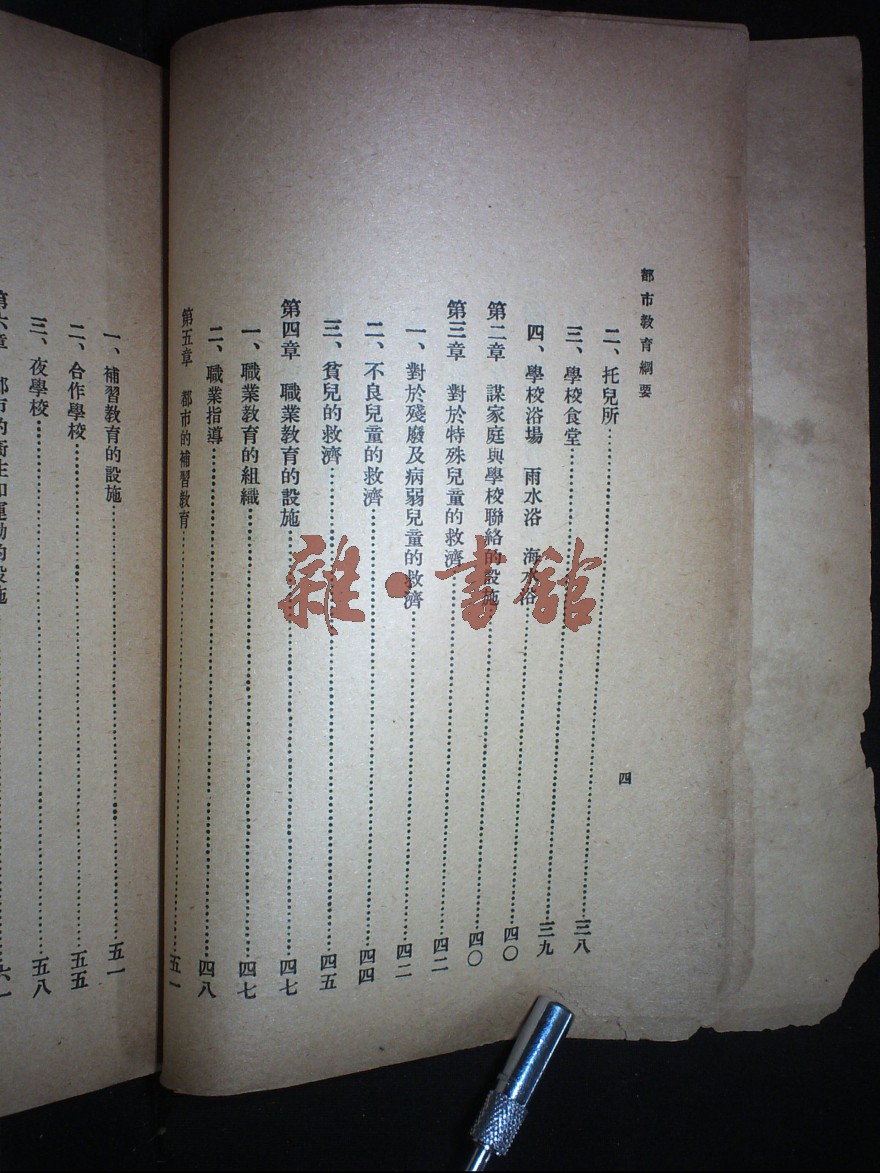 都市教育綱要
四
二、托兒所……三八
三、學校食堂……三九
四、學校浴場　雨水浴　海水浴……四〇
第二章　謀家庭與學校聯絡的設施……四〇
第三章　對於特殊兒童的救濟……四二
一、對於殘廢及病弱兒童的救濟……四二
二、不良兒童的救濟……四四
三、貧兒的救濟……四五
第四章　職業教育的設施……四七
一、職業教育的組織……四七
二、職業指導……四八
第五章　都市的補習教育……五一
一、補習教育的設施……五一
二、合作學校……五五
三、夜學校……五八
第六章　都市的衛生和運動的設施……六一
雜·書館